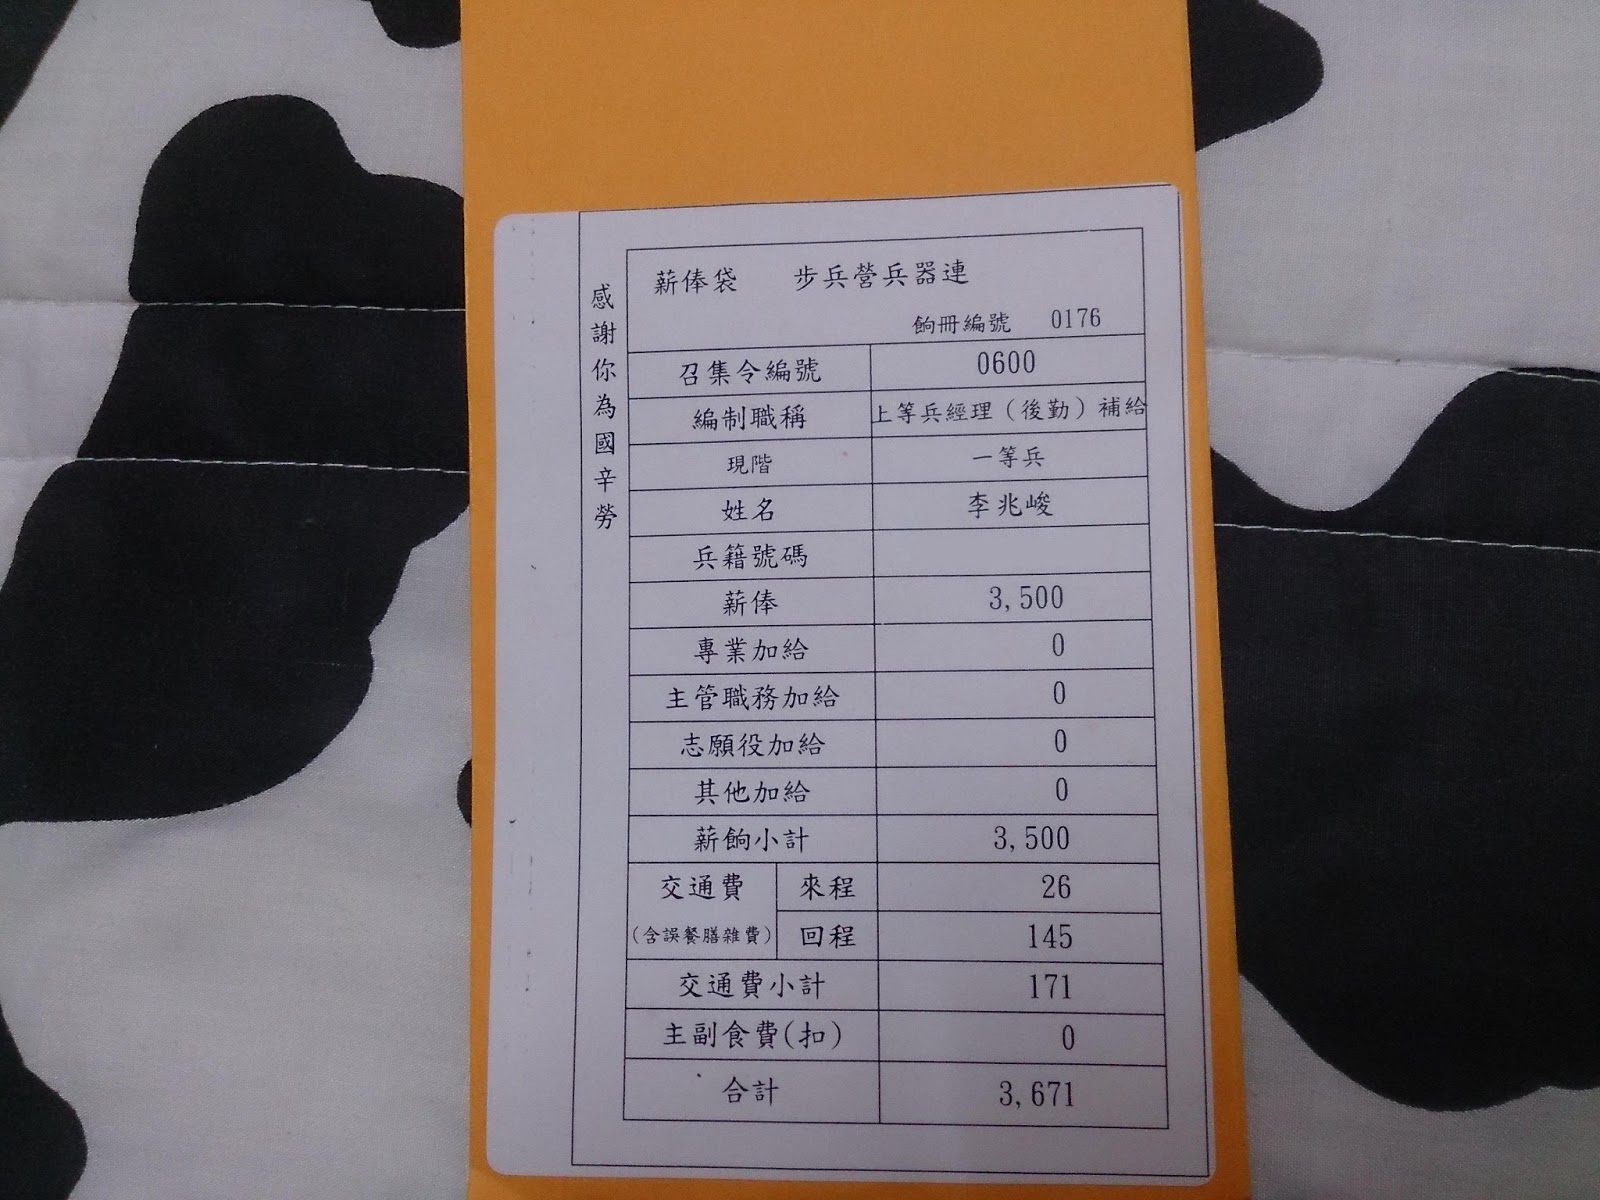 感謝你為國辛勞
薪俸袋 步兵營兵器連
餉冊編號 0176
召集令編號 0600
編制職稱 上等兵經理（後勤）補給
現階 一等兵
姓名 李兆峻
兵籍號碼
薪俸 3,500
專業加給 0
主管職務加給 0
志願役加給 0
其他加給 0
薪餉小計 3,500
交通費 來程 26
(含誤餐膳雜費) 回程 145
交通費小計 171
主副食費(扣) 0
合計 3,671